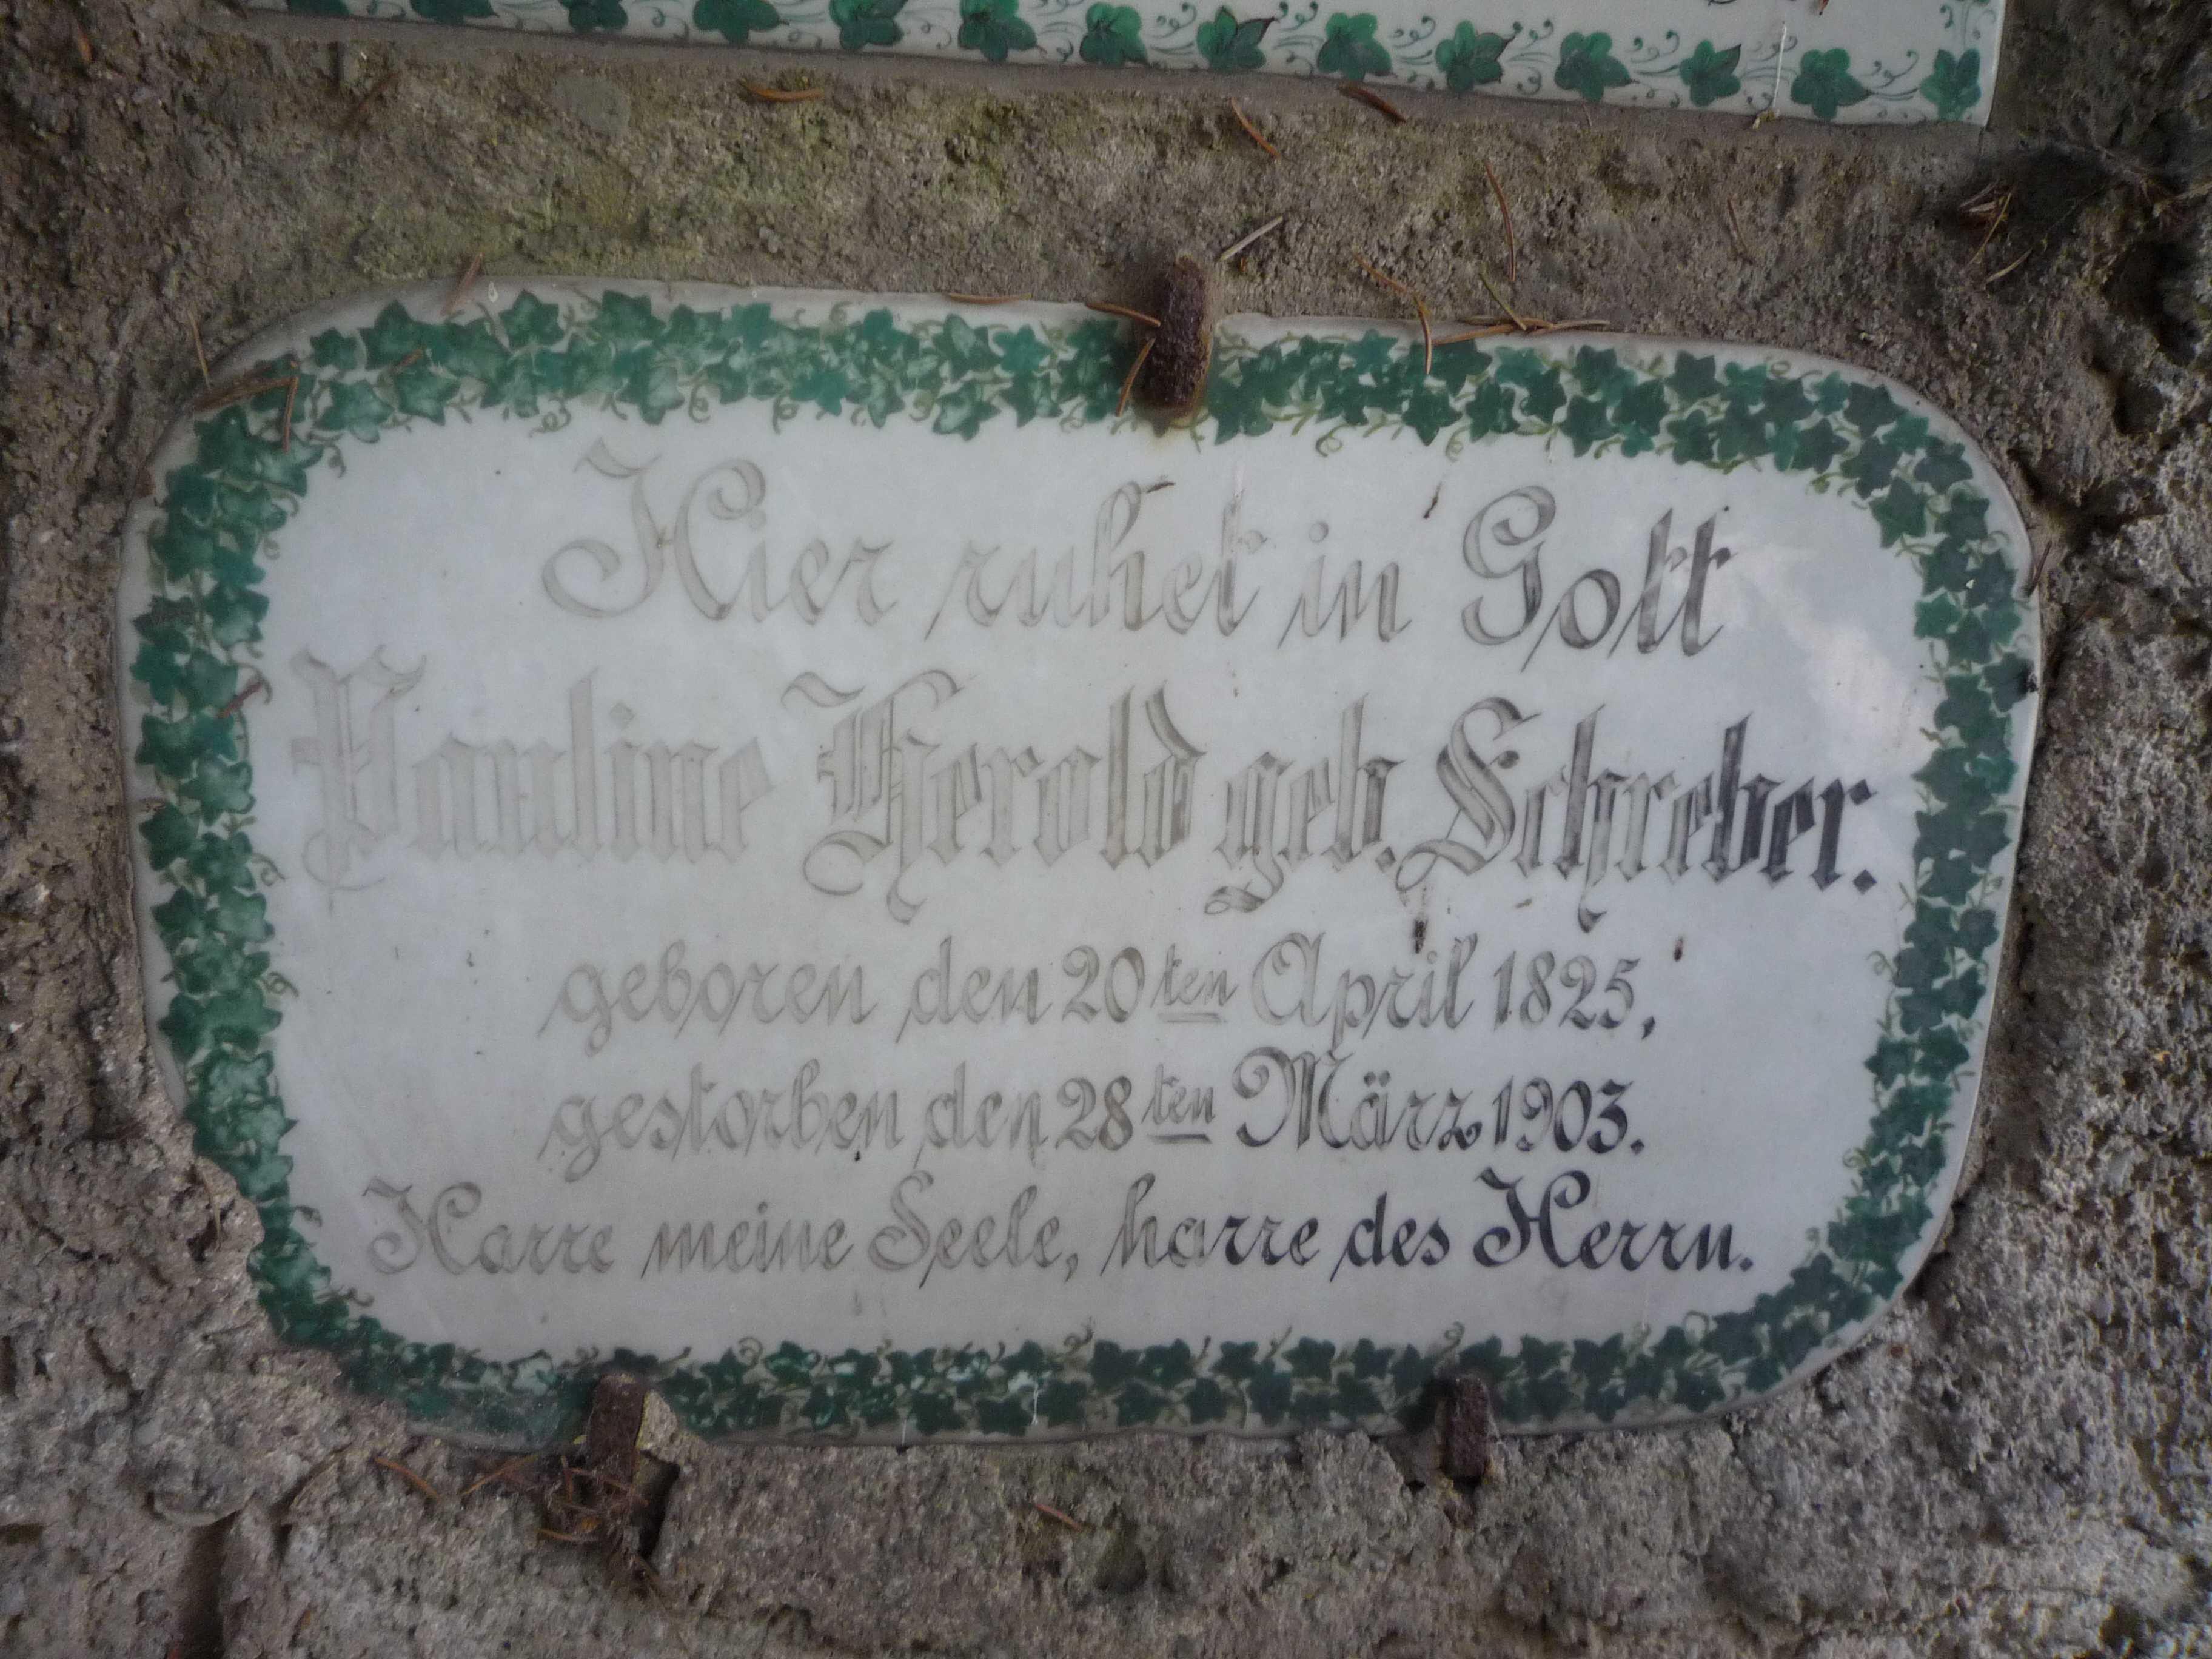 Hier ruhet in Gott
Pauline Herold geb. Schreber.
geboren den 20ten April 1825,
gestorben den 28ten März 1903.
Harre meine Seele, harre des Herrn.